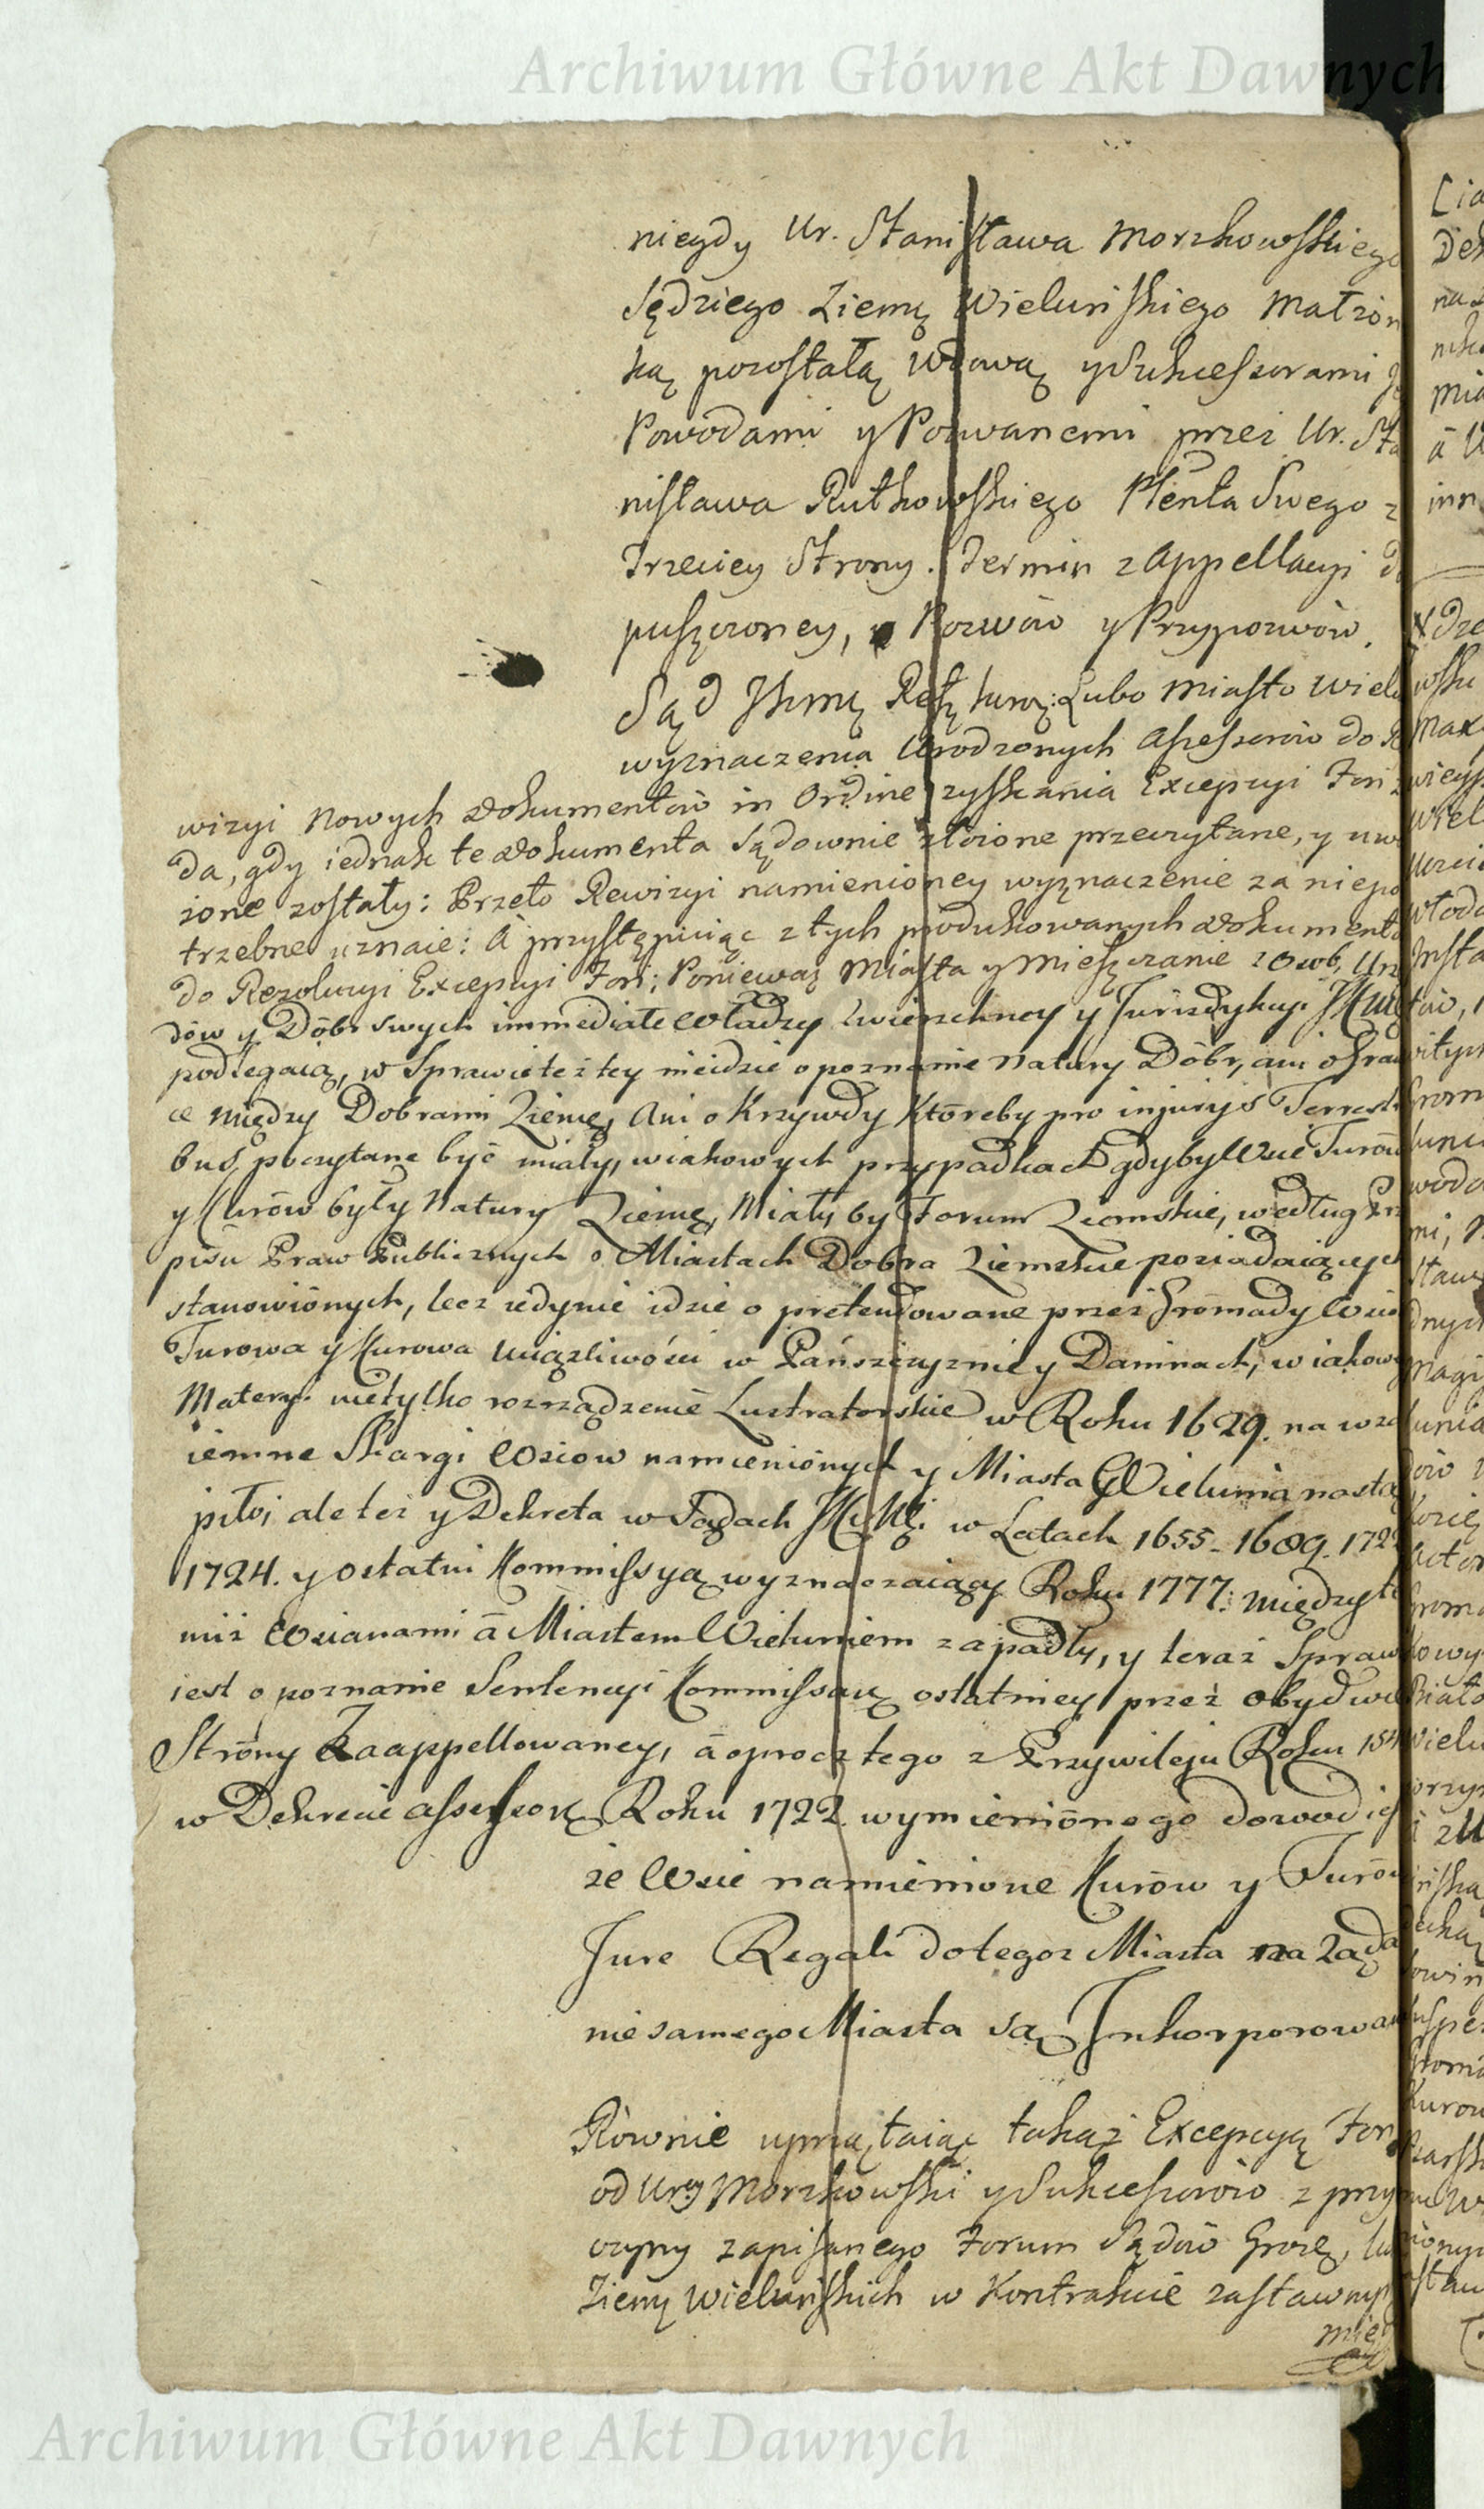 Archiwum Główne Akt Dawnych
niegdy Ur. Stanisława Morzkowskiego
Sędziego Ziemę Wieluńskiego Małżon
ką pozostałą Wdową y Sukcessorami
Powodami y Pozwanemi przez Ur. Sta
nisława Rutkowskiego Plenta Swego z
Trzeciey Strony. Termin z Appellacyi do
puszczoney, Pozwów y Przypozwów.
Sąd JKmę Lubo Miasto Wielu
wyznaczenia Urodzonych Assessorów do Re
wizyi Nowych Dokumentów in Ordine zyskania Excepcyi Fori
da, gdy iednak te Dokumenta Sądownie złożone przeczytane, y uwa
żone zostały: Przeto Rewizyi namienioney wyznaczenie za niepo
trzebne uznaie: A przystępuiąc z tych produkowanych Dokumentó
do Rezolucyi Excepcyi Fori; Ponieważ Miasta y Mieszczanie z Osób, Urzę
dów y Dóbr swych immediate władzy zwierzchney y Jurizdykcyi JKmę
podlegaią, w Sprawie też tey nieidzie o poznanie Natury Dóbr, ani o Grani
ce między Dobrami Ziemę, Ani o Krzywdy któreby pro injuriis Terrestri
bus poczytane być miały, wiakowych przypadkach gdyby Wsie Turów
y Kurów były Natury Ziemę, Miały by Forum Ziemskie, według Prze
pisu Praw Publicznych o Miastach Dobra Ziemskie posiadaiących
stanowiónych, lecz iedynie idzie o pretendowane przez Gromady Wsiów
Turowa y Kurowa uciążliwości w Pańszczyznie y Daninach, w iakowey
Materyi nietylko rozrządzenie Lustratorskie w Roku 1629. na wza
iemne Skargi Wsiow namienionych y Miasta Wielunia nastą
piło; ale też y Dekreta w Sądach JKMę. w Latach 1655 - 1689. 1722
1724. y ostatni Kommissyą wyznaczaiący Roku 1777. między te
miż Wsianami á Miastem Wieluniem zapadły, y teraz Sprawa
iest o poznanie Sentencyi Kommissarę ostatniey przez obydwie
Stróny Zaappellowaney, á oprocz tego z Przywileju Roku 154
w Dekrecie Assessorę Roku 1722. wymieniónego dowod iest
że Wsie namienione Kurów y Turów
Jure Regali do tegoż Miasta na Żąda
nie samego Miasta są Inkorporowane
Równie uprzątaiąc takąż Excepcyą Fori
od Urey Morzkowski y Sukcessorów z przy
czyny zapisanego Forum Sądów Grodzę, lub
Ziemę Wieluńskich w Kontrakcie zastawnym
mię
Archiwum Główne Akt Dawnych